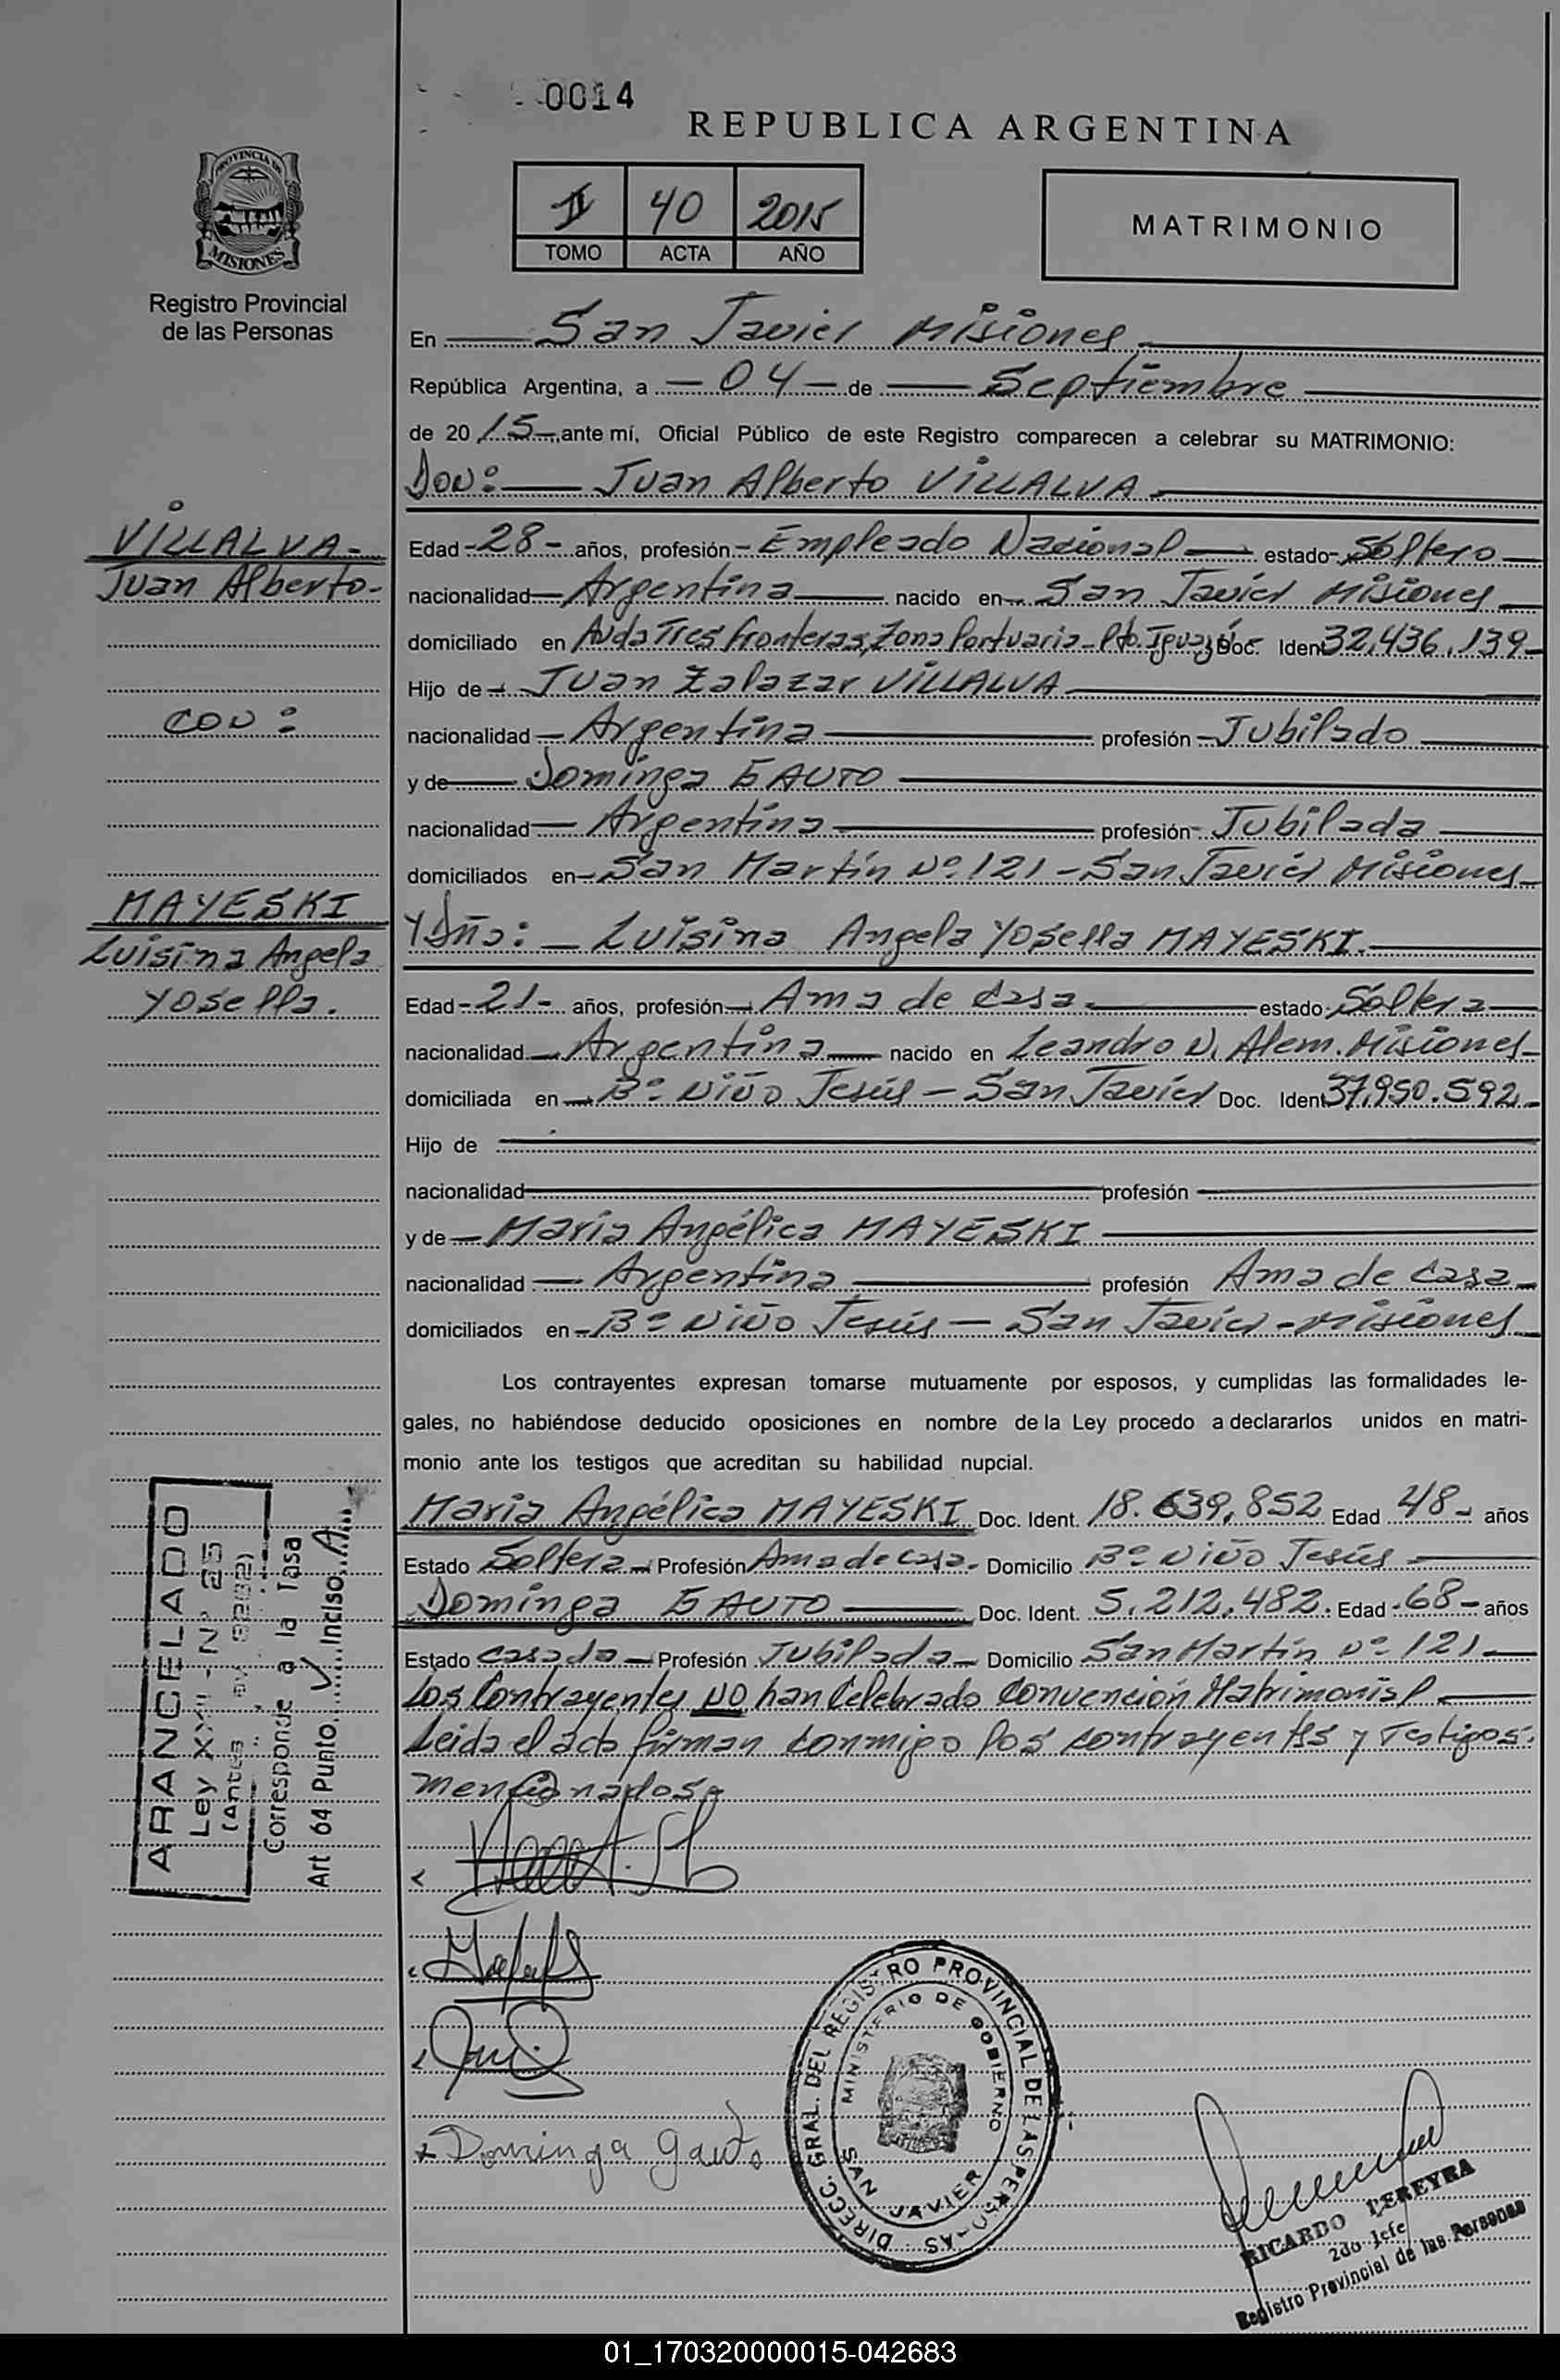 0014
REPUBLICA ARGENTINA
PROVINCIA DE
MISIONES
Registro Provincial
de las Personas
II 40 2015
TOMO ACTA AÑO
MATRIMONIO
En San Javier Misiones
República Argentina, a 04 de Septiembre
de 20 15, ante mí, Oficial Público de este Registro comparecen a celebrar su MATRIMONIO:
Don: Juan Alberto VILLALVA
VILLALVA-
Juan Alberto-
con:
MAYESKI
Luisina Angela
Yosella.
Edad -28- años, profesión - Empleado Nacional estado- Soltero
nacionalidad Argentina nacido en San Javier Misiones
domiciliado en Avda Tres Fronteras, Zona Portuaria - Pto. Iguazú Doc. Ident 32.436.139-
Hijo de Juan Zalazar VILLALVA
nacionalidad - Argentina profesión - Jubilado
y de Dominga GAUTO
nacionalidad - Argentina profesión - Jubilada
domiciliados en - San Martín Nº 121 - San Javier Misiones
Y Dña: - Luisina Angela Yosella MAYESKI.
Edad -21- años, profesión Ama de Casa. estado Soltera
nacionalidad Argentina nacido en Leandro N. Alem. Misiones
domiciliada en Bº Niño Jesús - San Javier Doc. Ident 37.950.592-
Hijo de
nacionalidad profesión
y de - María Angélica MAYESKI
nacionalidad - Argentina profesión Ama de Casa
domiciliados en - Bº Niño Jesús - San Javier - Misiones
Los contrayentes expresan tomarse mutuamente por esposos, y cumplidas las formalidades le-
gales, no habiéndose deducido oposiciones en nombre de la Ley procedo a declararlos unidos en matri-
monio ante los testigos que acreditan su habilidad nupcial.
María Angélica MAYESKI Doc. Ident. 18.639.852 Edad 48- años
Estado Soltera - Profesión Ama de casa. Domicilio Bº Niño Jesús
Dominga GAUTO Doc. Ident. 5.212.482. Edad -68- años
Estado Casada - Profesión Jubilada - Domicilio San Martín Nº 121
Los Contrayentes NO han Celebrado Convención Matrimonial
Leida el acta firman conmigo los contrayentes y Testigos.
mencionados
ARANCELADO
Ley XXII - Nº 25
(Antes
Corresponde a la Tasa
Art 64 Punto V Inciso A
Dominga Gauto
DIRECC. GRAL. DEL REGISTRO PROVINCIAL DE LAS PERSONAS
MINISTERIO DE GOBIERNO
SAN JAVIER
RICARDO PEREYRA
2do Jefe
Registro Provincial de las Personas
01_170320000015-042683